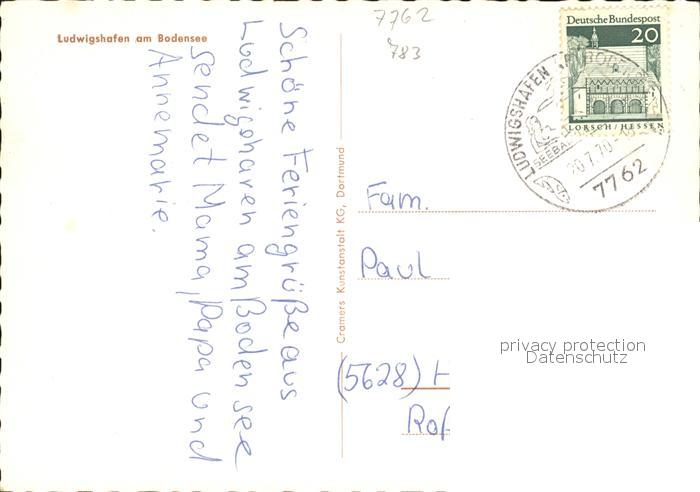 Ludwigshafen am Bodensee
7762
783
Schöne Feriengrüße aus
Ludwigshafen am Boden see
sendet Mama, Papa und
Annemarie.
Cramers Kunstanstalt KG, Dortmund
Deutsche Bundespost
20
LORSCH/HESSEN
LUDWIGSHAFEN
SEEBA
20.7.70
7762
Fam.
Paul
(5628) H
privacy protection
Datenschutz